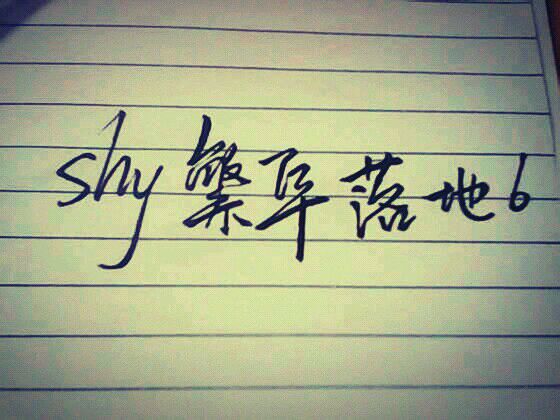 shy繁华落地6